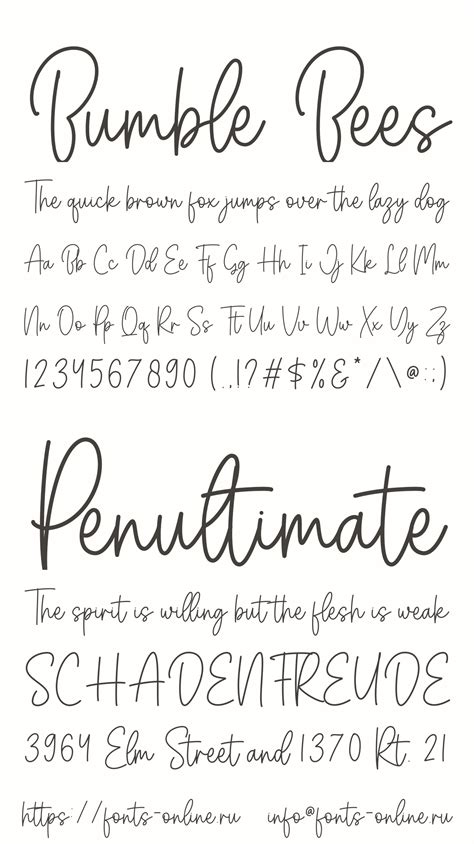 Bumble Bees
The quick brown fox jumps over the lazy dog
Aa Bb Cc Dd Ee Ff Gg Hh Ii Jj Kk Ll Mm
Nn Oo Pp Qq Rr Ss Tt Uu Vv Ww Xx Yy Zz
1234567890 (.,!?#$%&*/\@:;)
Penultimate
The spirit is willing but the flesh is weak
SCHADENFREUDE
3964 Elm Street and 1370 Rt. 21
https://fonts-online.ru info@fonts-online.ru